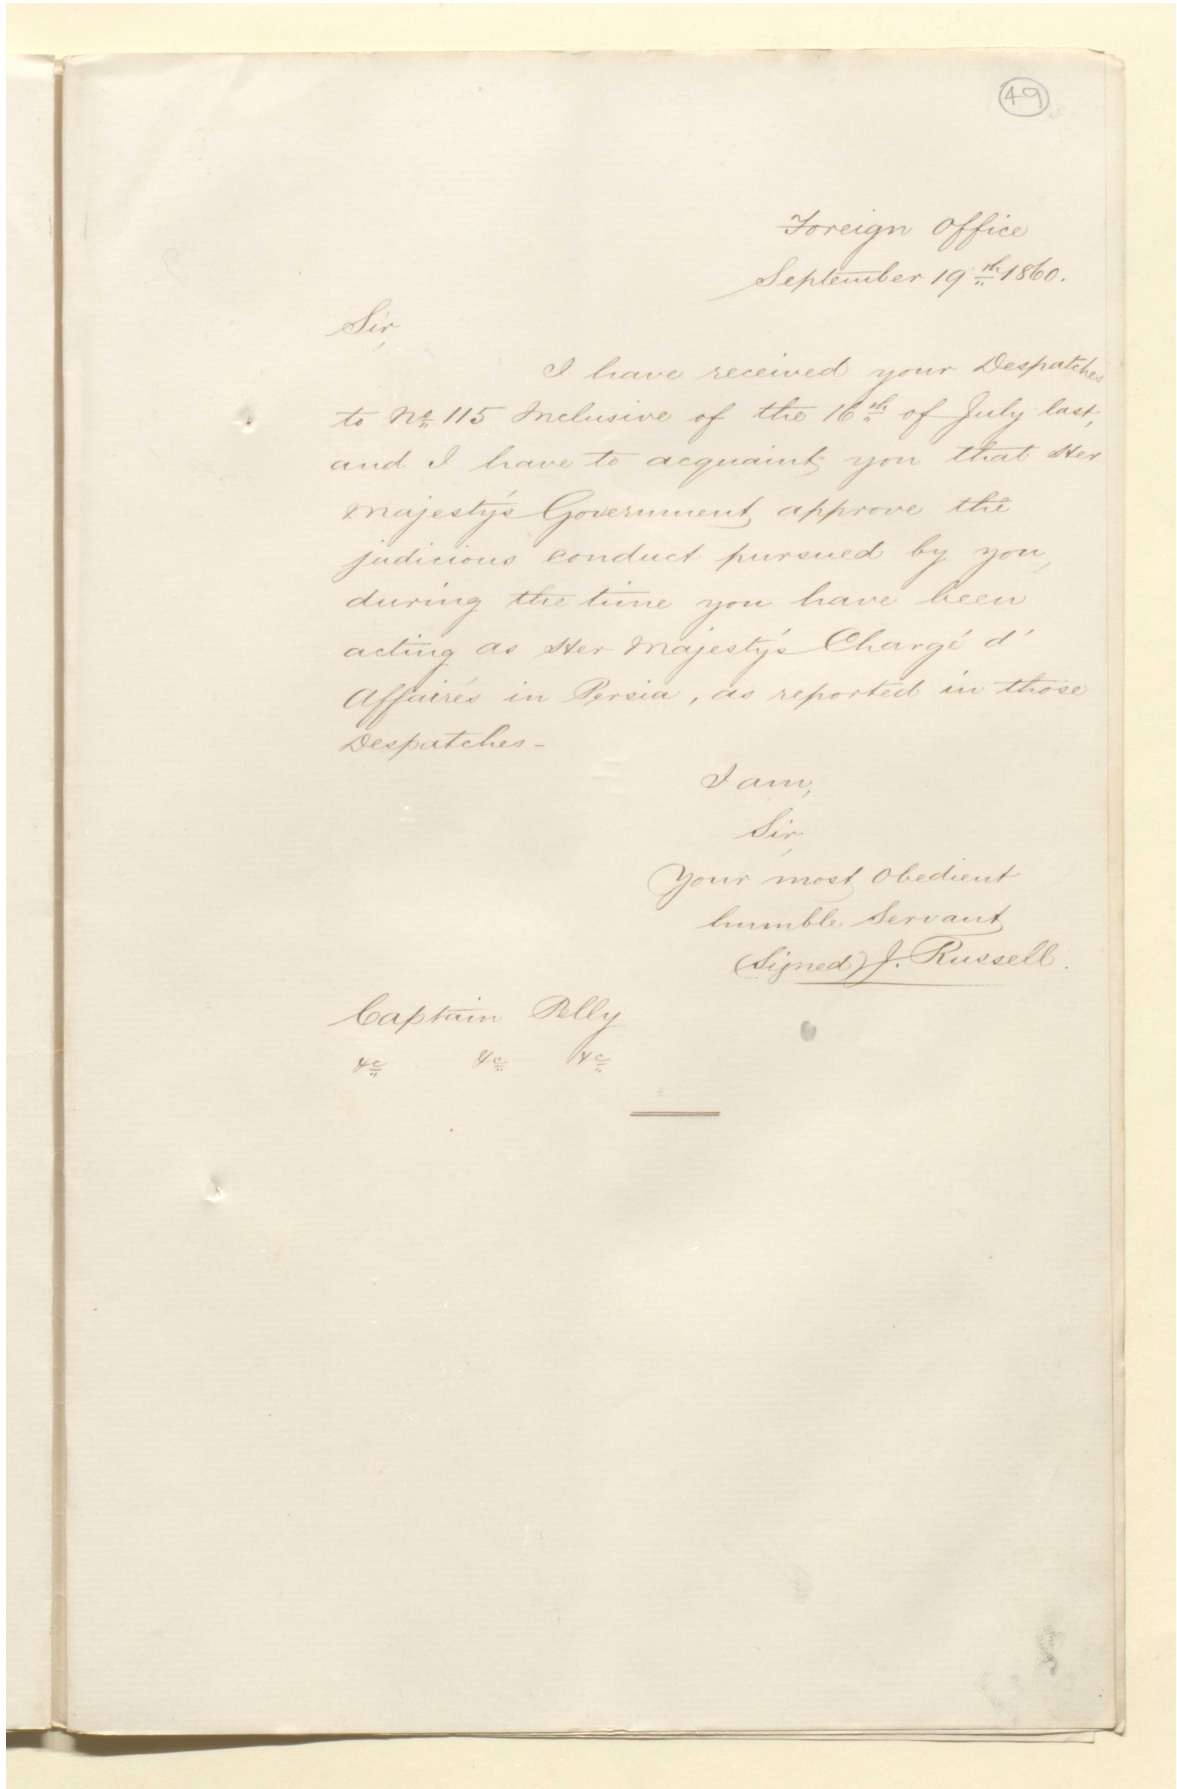 49
Foreign Office
September 19th 1860.
Sir,
I have received your Despatches
to No. 115 Inclusive of the 16th of July last,
and I have to acquaint you that Her
Majesty's Government approve the
judicious conduct pursued by you,
during the time you have been
acting as Her Majesty's Chargé d'
Affairés in Persia, as reported in those
Despatches -
I am,
Sir,
Your most Obedient
humble Servant
(Signed) J. Russell.
Captain Pelly
&c &c &c